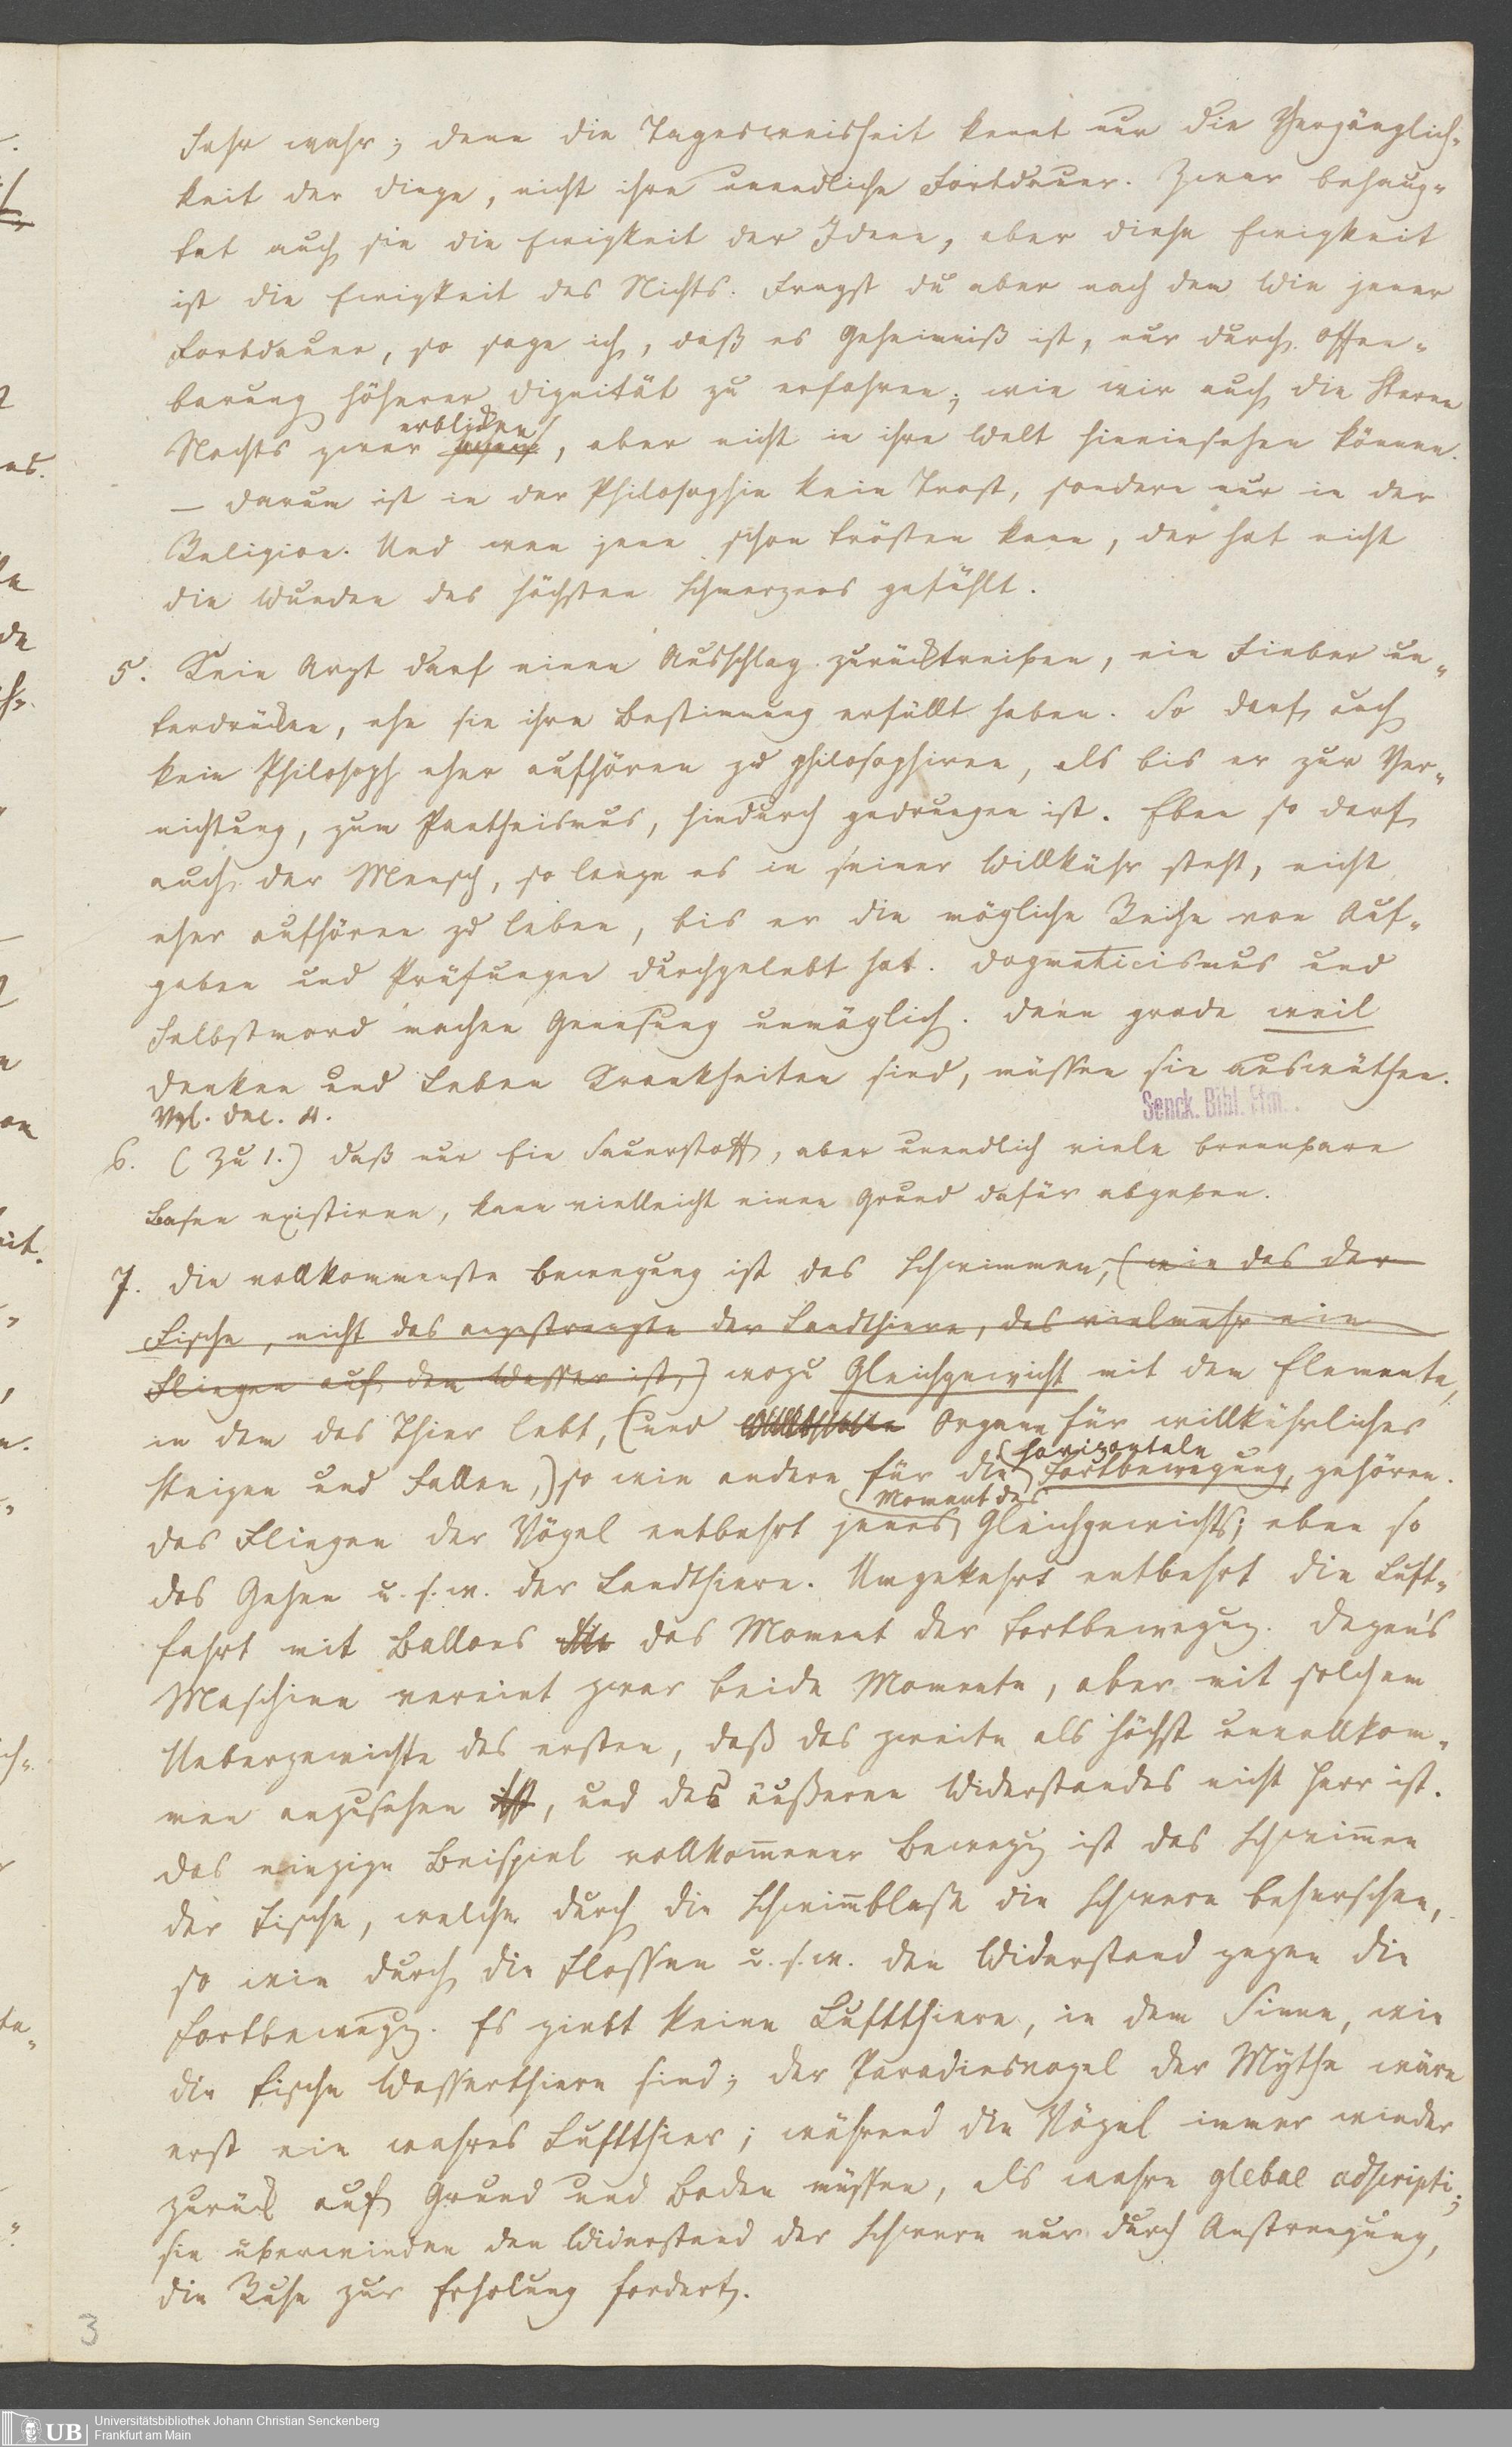 Sehr wahr; denn die Tagesweisheit kennt nur die Vergänglich-
keit der Dinge, nicht ihre unendliche Fortdauer. Zwar behaup-
tet auch sie die Ewigkeit der Ideen, aber diese Ewigkeit
ist die Ewigkeit des Nichts. Fragst du aber nach dem Wie jener
Fortdauer, so sage ich, daß es Geheimniß ist, nur durch Offen-
barung höherer Dignität zu erfahren; wie wir auch die Sterne
erblicken
Nachts zwar sehen, aber nicht in ihre Welt hineinsehen können.
– Darum ist in der Philosophie kein Trost, sondern nur in der
Religion. Und wen jene schon trösten kann, der hat nicht
die Wunden des höchsten Schmerzens gefühlt.
5. Kein Arzt darf einen Ausschlag zurücktreiben, ein Fieber un-
terdrücken, ehe sie ihre Bestimmung erfüllt haben. So darf auch
kein Philosoph eher aufhören zu philosophiren, als bis er zur Ver-
nichtung, zum Pantheismus, hindurch gedrungen ist. Eben so darf
auch der Mensch, so lange es in seiner Willkühr steht, nicht
eher aufhören zu leben, bis er die mögliche Reihe von Auf-
gaben und Prüfungen durchgelebt hat. Dogmaticismus und
Selbstmord machen Genesung unmöglich. Denn grade weil
Denken und Leben Krankheiten sind, müssen sie auswüthen.
Senck. Bibl. Ffm.
Vgl. Dec. 4.
6. (Zu 1.) Daß nur Ein Sauerstoff, aber unendlich viele brennbare
Basen existiren, kann vielleicht einen Grund dafür abgeben.
7. Die vollkommenste Bewegung ist das Schwimmen, (wie das der
Fische, nicht das angestrengte der Landthiere, das vielmehr ein
Fliegen auf dem Wasser ist,) wozu Gleichgewicht mit dem Elemente,
in dem das Thier lebt, (und Organe für willkührliches
horizontale
Steigen und Fallen,) so wie andere für die Fortbewegung, gehören.
Moment des
Das Fliegen der Vögel entbehrt jenes Gleichgewichts; eben so
das Gehen u. s. w. der Landthiere. Umgekehrt entbehrt die Luft-
fahrt mit Ballons das Moment der Fortbewegung. Degen's
Maschine vereint zwar beide Momente, aber mit solchem
Uebergewichte des ersten, daß das zweite als höchst unvollkom-
men anzusehen ist, und des äußeren Widerstandes nicht Herr ist.
Das einzige Beispiel vollkom̄ener Bewegg ist das Schwim̄en
der Fische, welche durch die Schwim̄blase die Schwere beherschen,
so wie durch die Flossen u. s. w. den Widerstand gegen die
Fortbewegg. Es giebt keine Luftthiere, in dem Sinne, wie
die Fische Wasserthiere sind; der Paradiesvogel der Mythe wäre
erst ein wahres Luftthier; während die Vögel immer wieder
zurück auf Grund und Boden müssen, als wahre glebae adscripti;
sie überwinden den Widerstand der Schwere nur durch Anstrengung,
die Ruhe zur Erholung fordert.
3
UB
Universitätsbibliothek Johann Christian Senckenberg
Frankfurt am Main